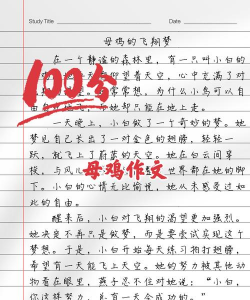 Study Title
Date
母鸡的飞翔梦
在一个静谧的森林里，有一只叫小白的
天空，心中充满了对
为什么小鸟可以自
却只能在地上走。
一天晚上，小白做了一个奇妙的梦。她
梦见自己长出了一对金色的翅膀，轻轻一
跃，就飞上了蔚蓝的天空。她在白云间穿
梭，与风儿
世界都在她的脚
下。小白的心情无比愉悦，她从未感受过如
此的自由。
醒来后，小白对飞翔的渴望更加强烈。
她决定不再只是做梦，而是要尝试实现这个
梦想。于是，小白开始每天练习拍打翅膀，
希望有一天能飞上天空。她的努力被其他动
物看在眼里，燕子忍不住对她说：“小白，
你这样努力，总有一天会成功的。”
100分
母鸡作文